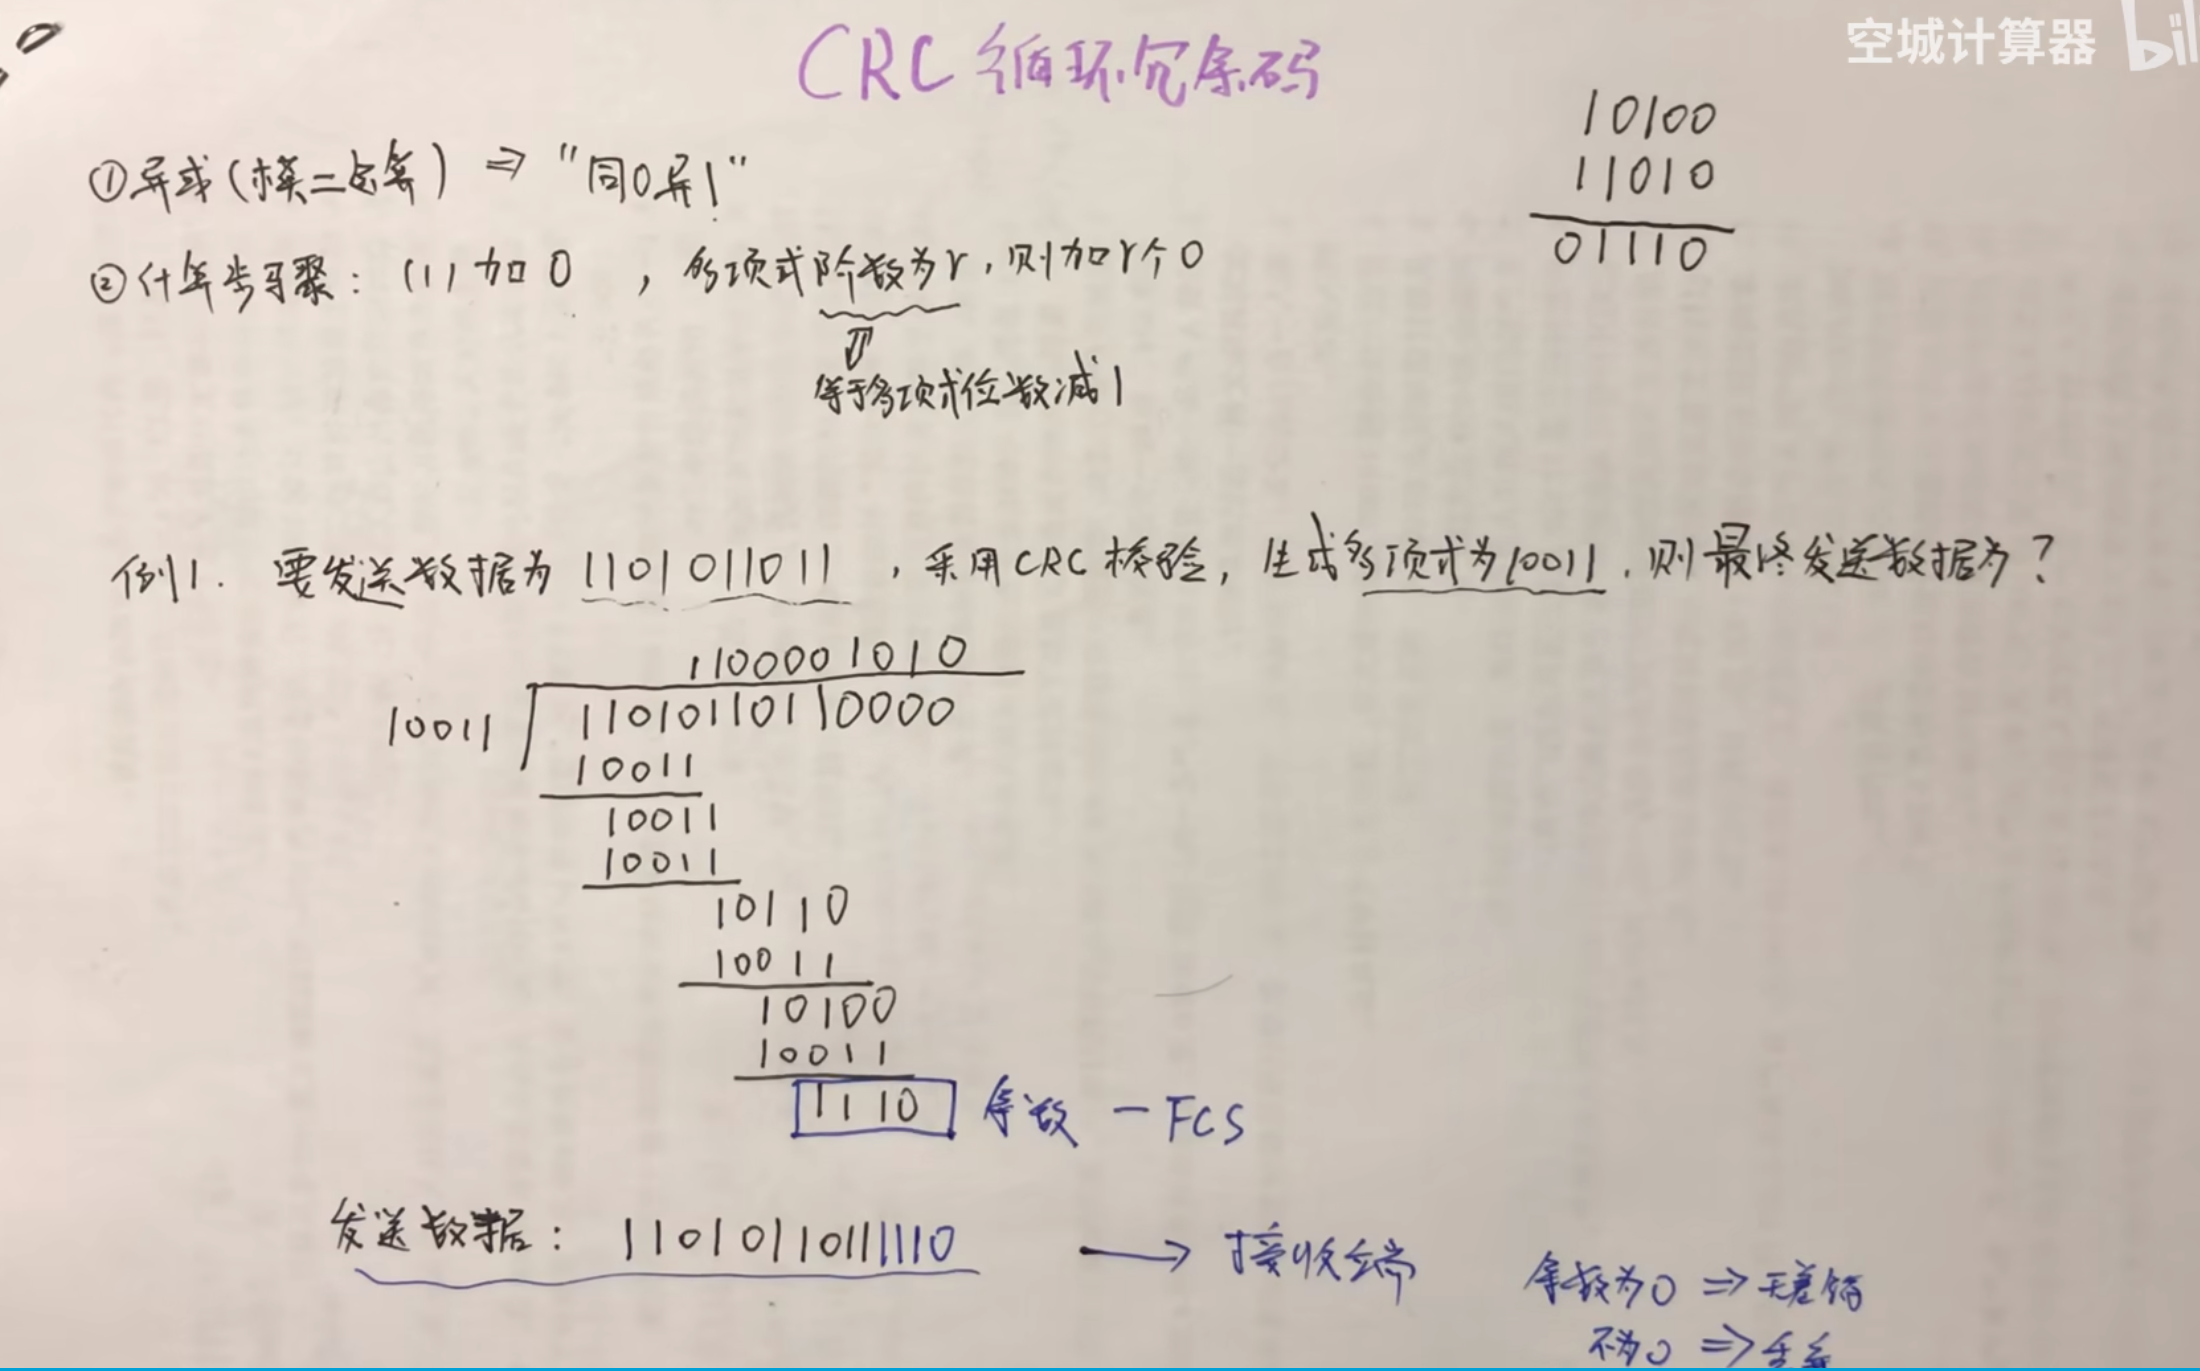 空城计算器 bil
CRC 循环冗余码
10100
11010
01110
①异或(模二运算) ⇒ "同0异1"
②计算步骤: (1) 加0 , 多项式阶数为r, 则加r个0
⇓
等于多项式位数减1
例1. 要发送数据为 1101011011 , 采用CRC校验, 生成多项式为10011, 则最终发送数据为?
1100001010
10011 11010110110000
10011
10011
10011
10110
10011
10100
10011
1110 余数 — FCS
发送数据: 11010110111110 → 接收端
余数为0 ⇒ 无差错
不为0 ⇒